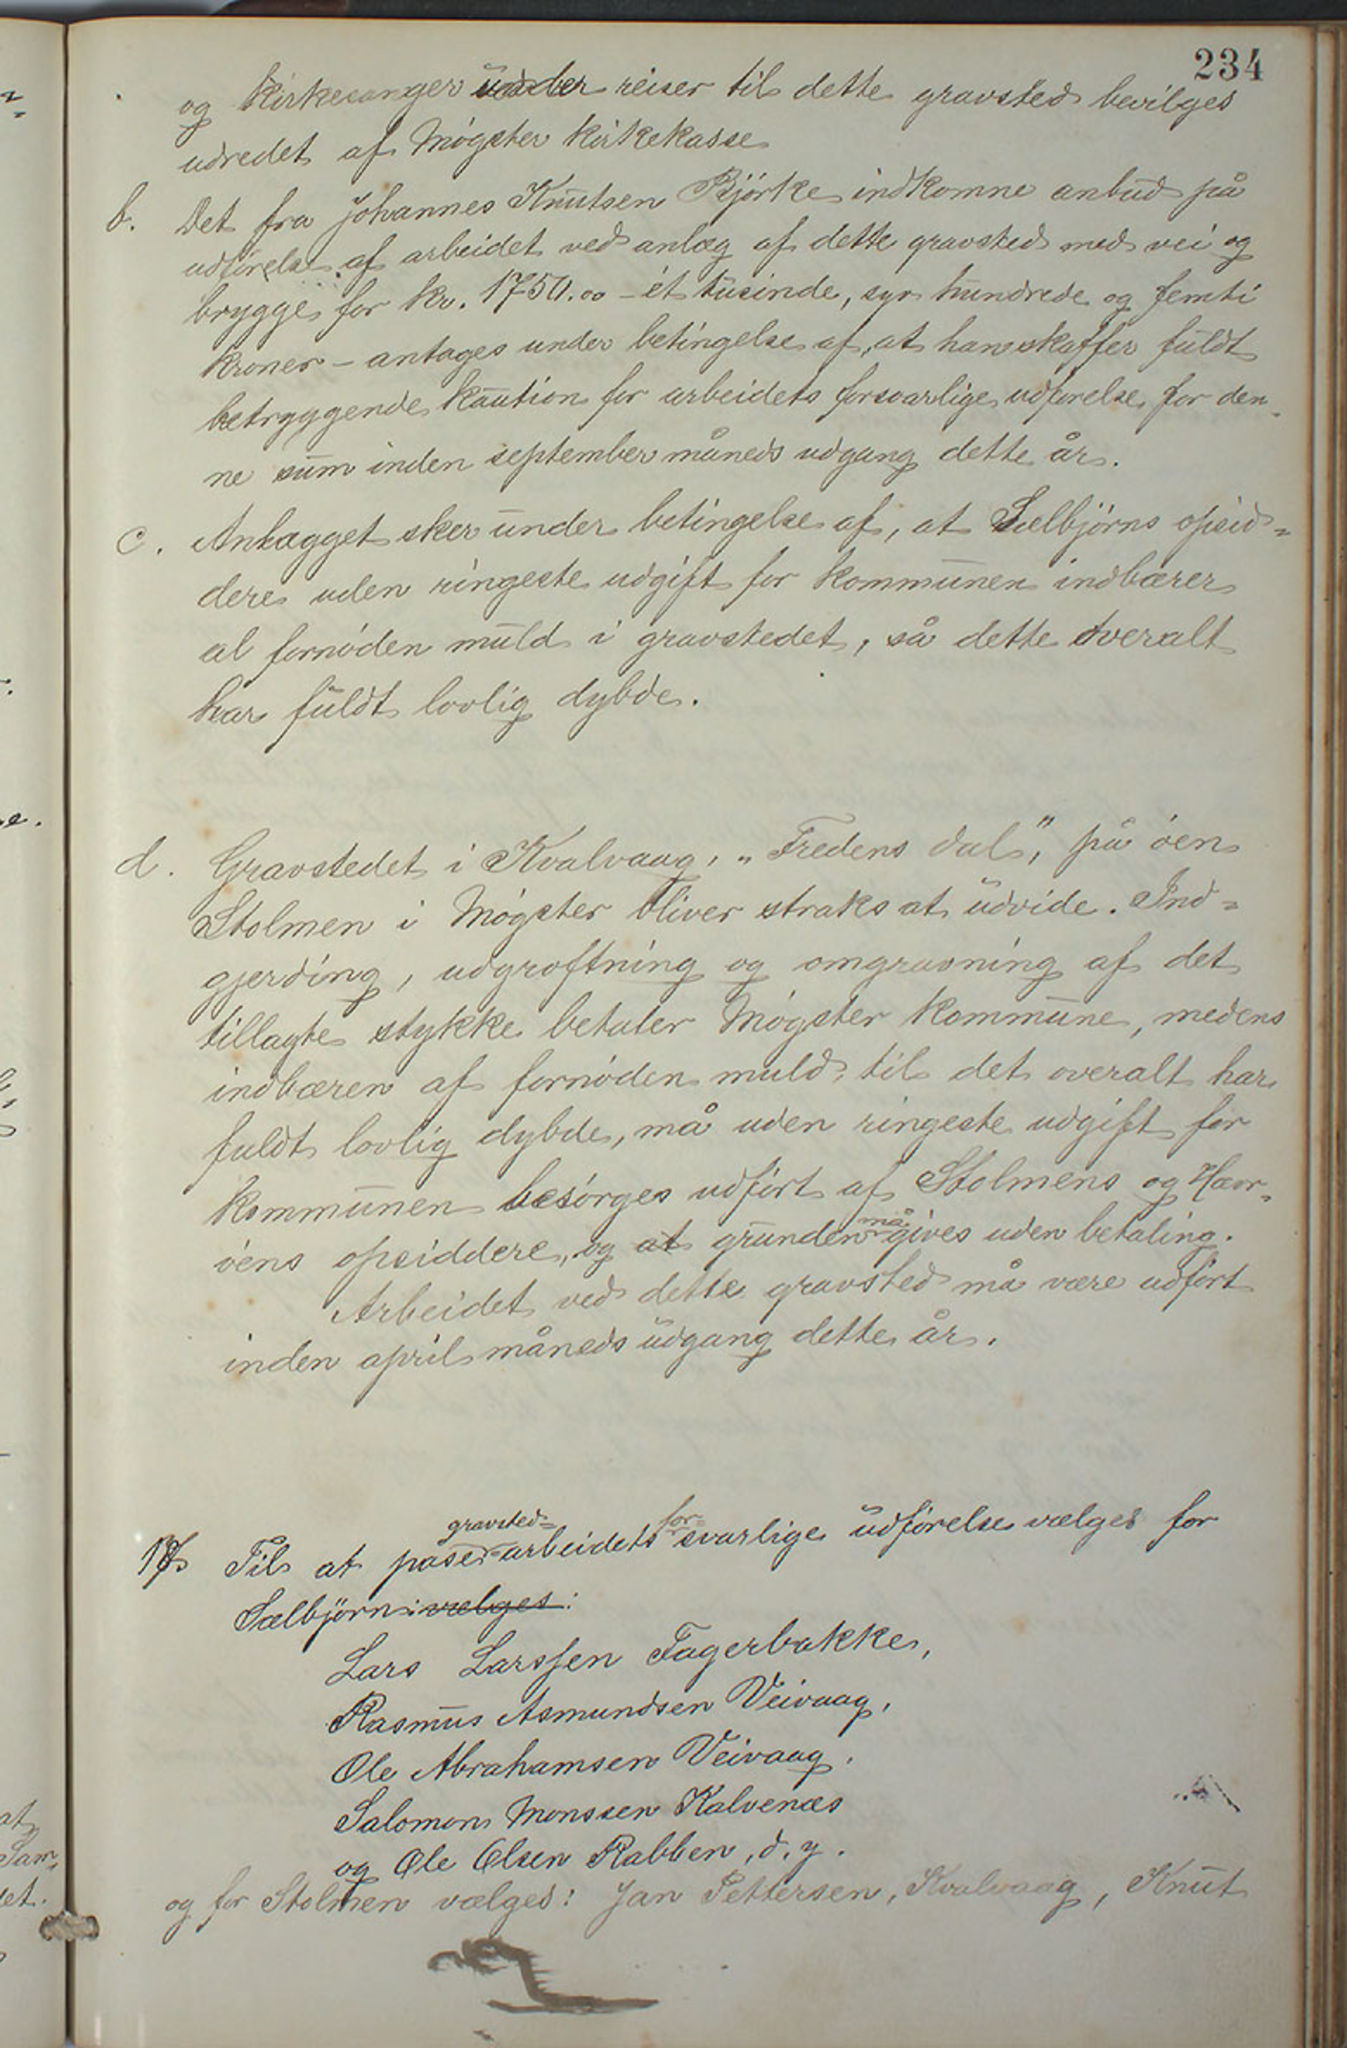 234
og kirkesanger under reiser til dette gravsted bevilges
udredet af Møgster kirkekasse
b. Det fra Johannes Knutsen Bjørke indkomne anbud på
udførelse af arbeidet ved anlæg af dette gravsted med vei og
brygge for kr. 1750.00 – ét tusinde, syv hundrede og femti
kroner – antages under betingelse af, at han skaffer fuldt
betryggende kaution for arbeidets forsvarlige udførelse for den-
ne sum inden september måneds udgang dette år.
c. Anlægget sker under betingelse af, at Selbjørns opsid=
dere uden ringeste udgift for kommunen indbærer
al fornøden muld i gravstedet, så dette overalt
har fuldt lovlig dybde.
d. Gravstedet i Kvalvaag, „Fredens dal", på øen
Stolmen i Møgster bliver straks at udvide. Ind=
gjerding, udgrøftning og omgravning af det
tillagte stykke betaler Møgster kommune, medens
indbæren af fornøden muld, til det overalt har
fuldt lovlig dybde, må uden ringeste udgift for
kommunen besørges udført af Stolmens og Hævr-
øens opsiddere, og at grunden må gives uden betaling.
Arbeidet ved dette gravsted må være udført
inden april måneds udgang dette år.
Til at påse gravsted=arbeidets for=svarlige udførelse vælges for
Sælbjørn: vælges:
Lars Larssen Fagerbakke,
Rasmus Asmundsen Veivaag,
Ole Abrahamsen Veivaag,
Salomon Monssen Kalvenæs
og Ole Olsen Rabben, d. y.
og for Stolmen vælges: Jan Pettersen, Kvalvaag, Knut